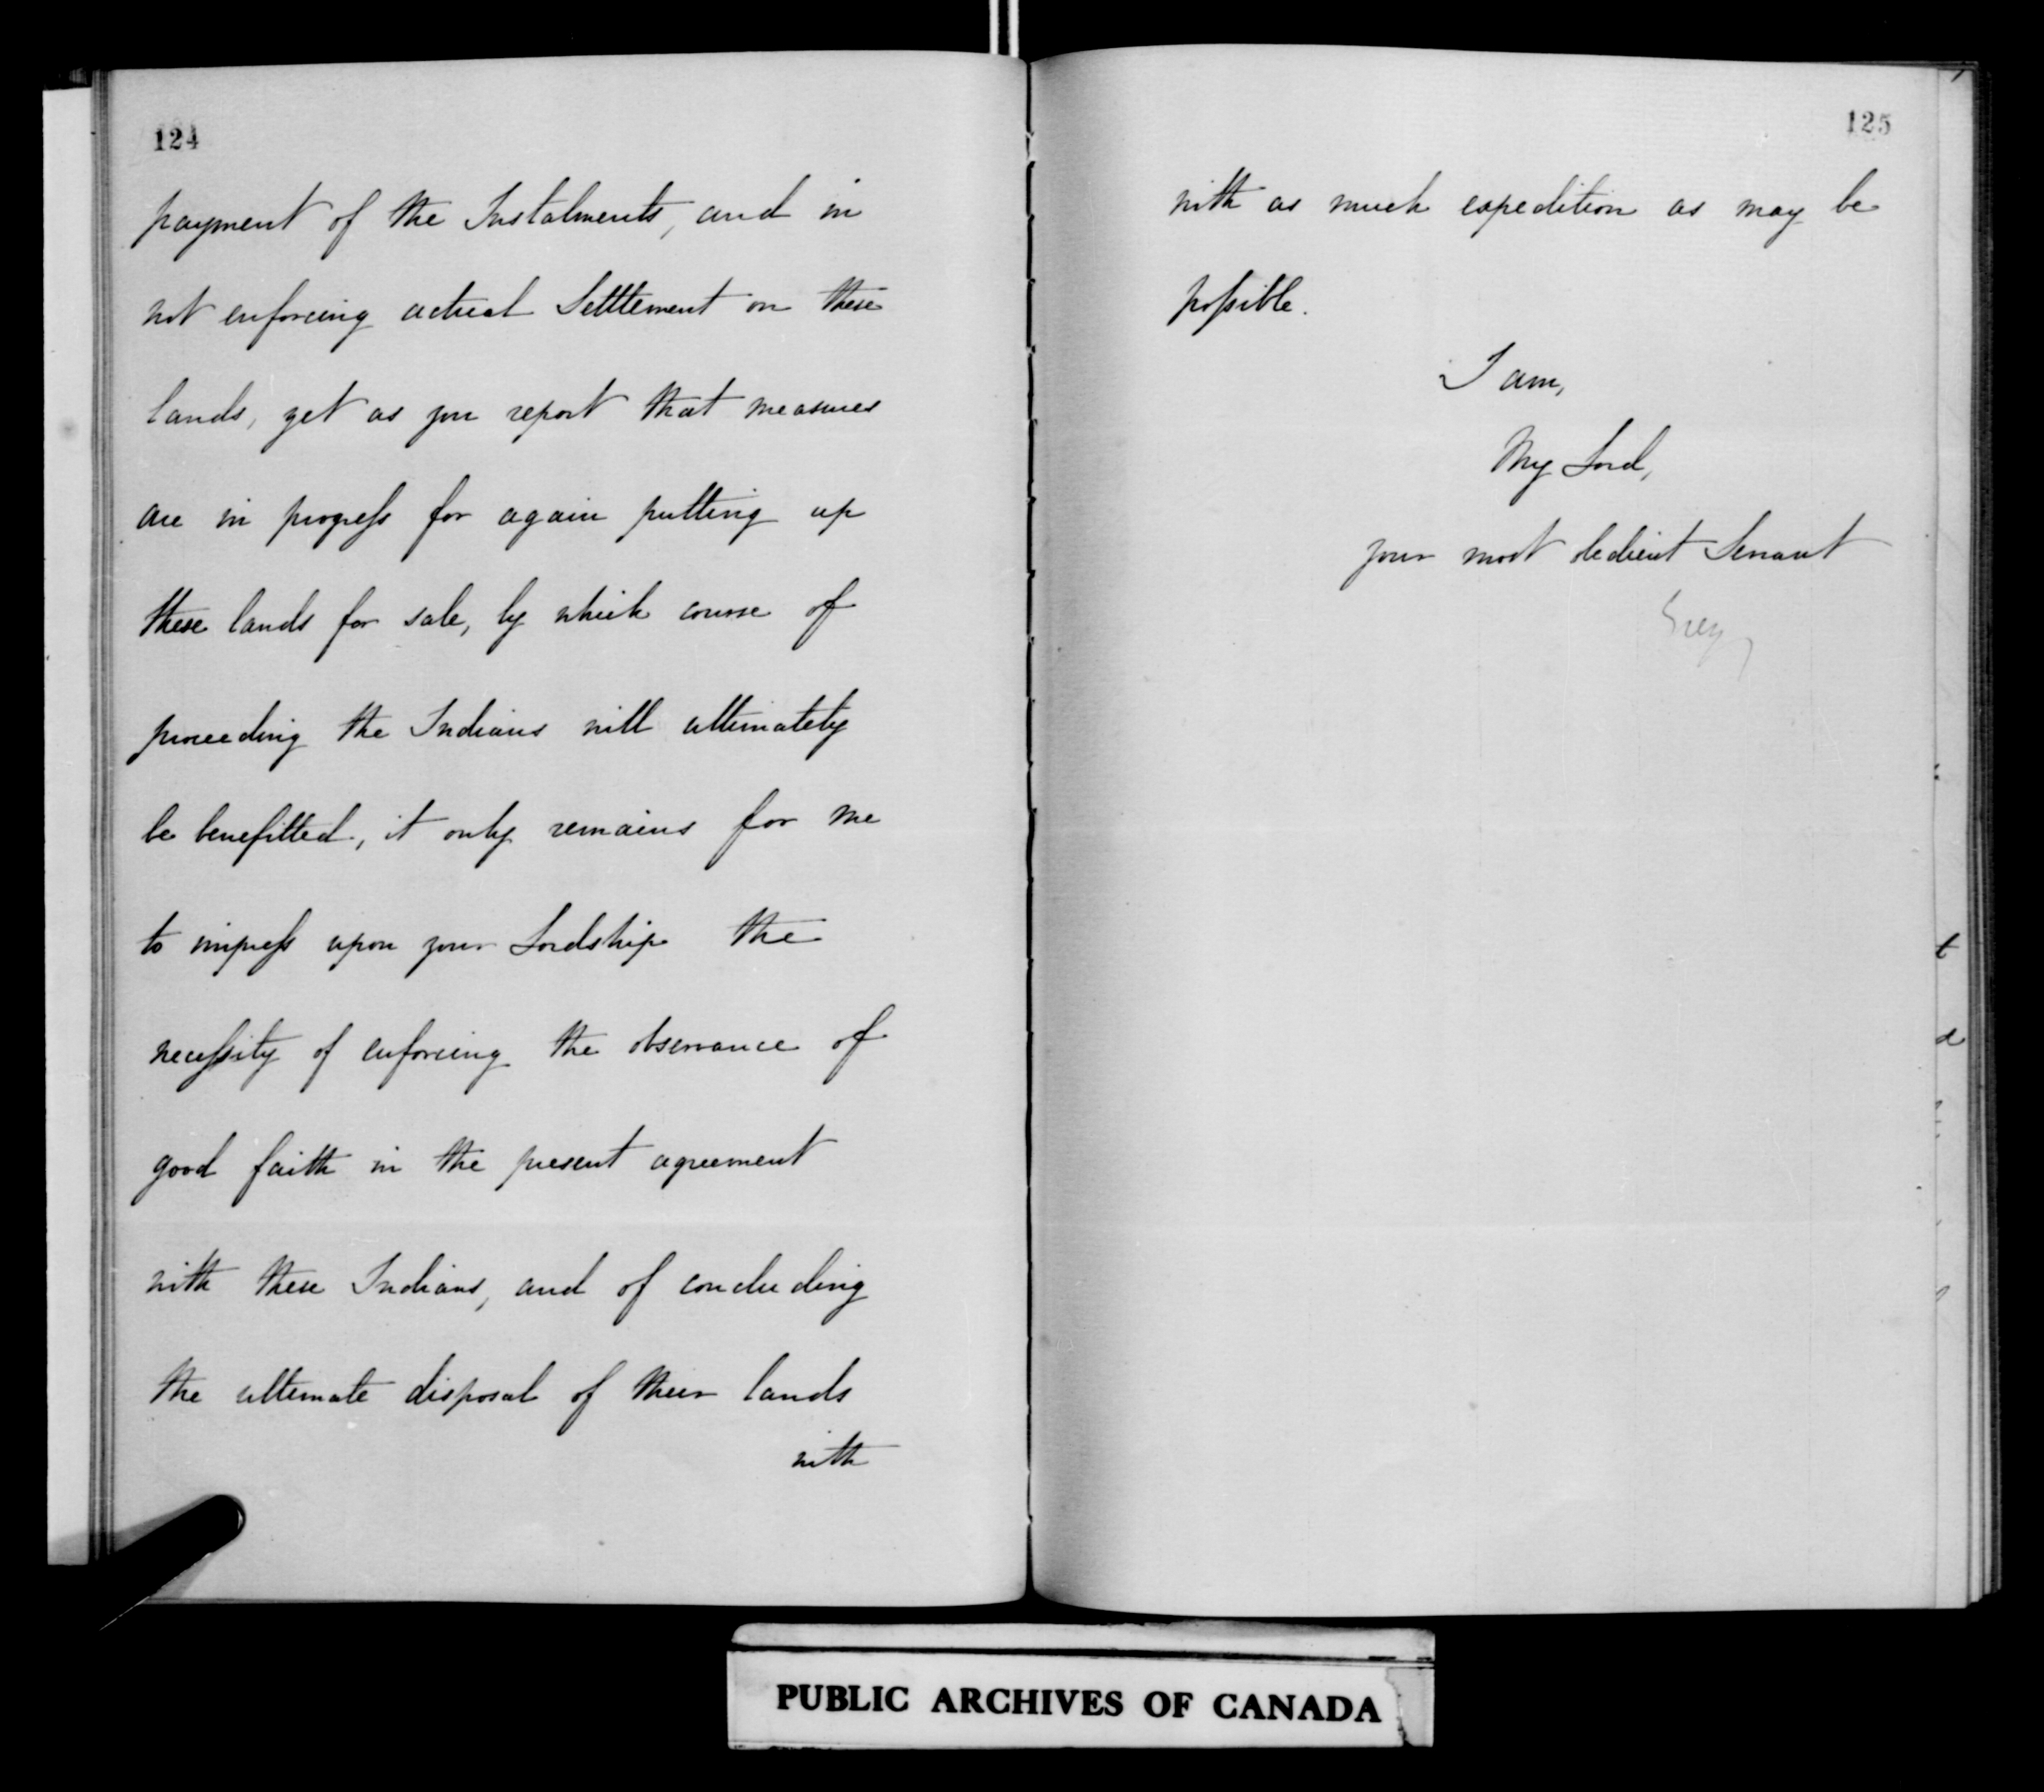 124
payment of the Instalments, and in
not enforcing actual Settlement on these
lands, yet as you report that measures
are in progress for again putting up
these lands for sale, by which course of
proceeding the Indians will ultimately
be benefitted, it only remains for me
to impress upon your Lordship the
necessity of enforcing the observance of
good faith in the present agreement
with these Indians, and of concluding
the ultimate disposal of their lands
with
125
with as much expedition as may be
possible.
I am,
My Lord,
your most obedient Servant
Grey
PUBLIC ARCHIVES OF CANADA